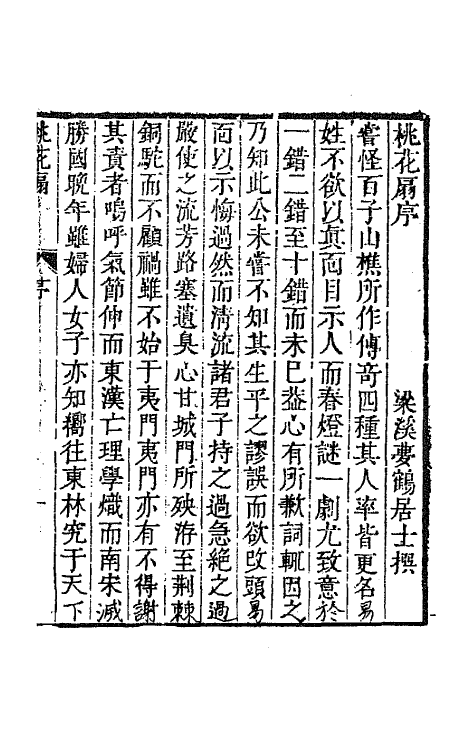 桃花扇序　梁溪夢鶴居士撰
嘗怪百子山樵所作傳奇四種其人率皆更名易
姓不欲以眞面目示人而春燈謎一劇尤致意於
一錯二錯至十錯而未巳葢心有所歉詞輒因之
乃知此公未嘗不知其生平之謬誤而欲改頭易
面以示悔過然而淸流諸君子持之過急絶之過
嚴使之流芳路塞遺臭心甘城門所殃洊至荆棘
銅駝而不顧禍雖不始于夷門夷門亦有不得謝
其責者嗚呼氣節伸而東漢亡理學熾而南宋滅
勝國晚年雖婦人女子亦知嚮往東林究于天下
桃花扇　序　一